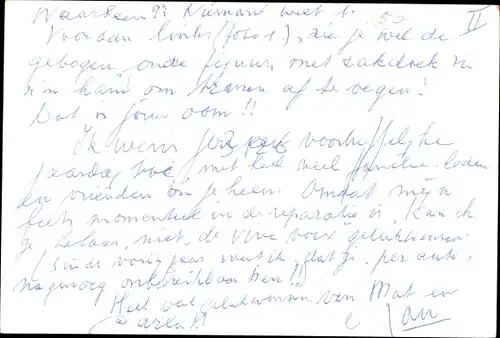 Waarheen?? Niemand weet 't.
II
Vooraan links (foto 1), zie je wel de
gebogen oude figuur, met zakdoek in
z'n hand om tranen af te vegen!
Dat is jouw oom!!
Ik wens voortreffelijke
jaardag toe, met heel veel familie-leden
en vrienden om je heen. Omdat mijn
fiets momenteel in de reparatie is, kan ik
je, helaas, niet, de vive voix gelukwensen.
(Sinds vorig jaar weet ik, dat je, per auto,
nagenoeg onbereikbaar ben!!)
Heel veel gelukwensen van Mat en
Carla!!
Jan